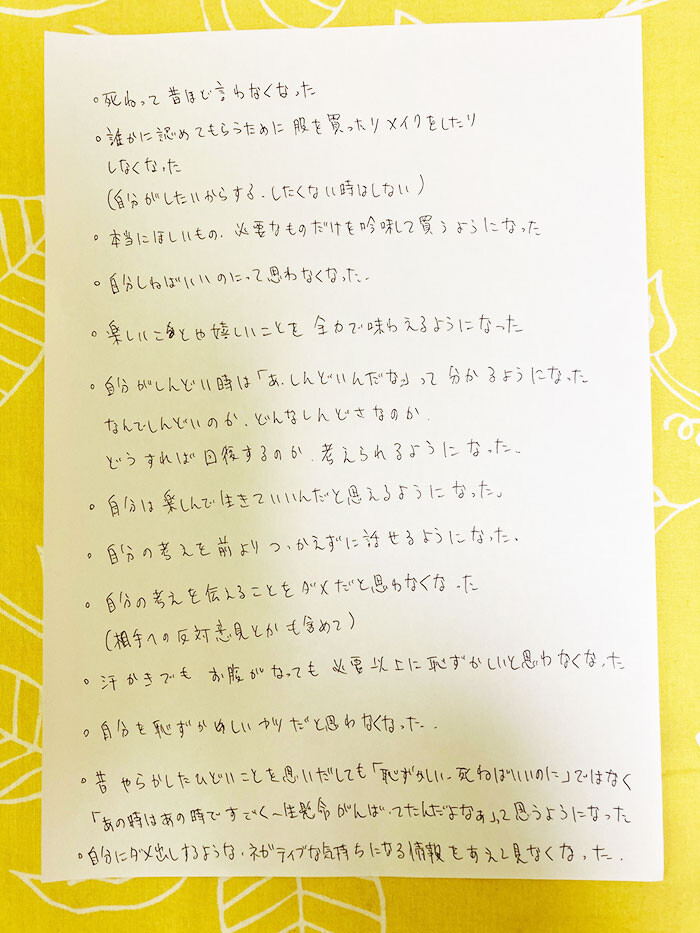 ○死ねって昔ほど言わなくなった
○誰かに認めてもらうために服を買ったりメイクをしたり
しなくなった
(自分がしたいからする.したくない時はしない)
○本当にほしいもの.必要なものだけを吟味して買うようになった
○自分しねばいいのにって思わなくなった.
○楽しいことや嬉しいことを全力で味わえるようになった
○自分がしんどい時は「あ.しんどいんだな」って分かるようになった
なんでしんどいのか.どんなしんどさなのか.
どうすれば回復するのか.考えられるようになった.
○自分は楽しんで生きていいんだと思えるようになった。
○自分の考えを前よりつっかえずに話せるようになった.
○自分の考えを伝えることをダメだと思わなくなった
(相手への反対意見とかも含めて)
○汗かきでもお腹がなっても必要以上に恥ずかしいと思わなくなった
○自分を恥ずかしいヤツだと思わなくなった.
○昔やらかしたひどいことを思いだしても「恥ずかしい.死ねばいいのに」ではなく
「あの時はあの時ですごく一生懸命がんばってたんだよなぁ」って思うようになった
○自分にダメ出しするような.ネガティブな気持ちになる情報をあえて見なくなった.